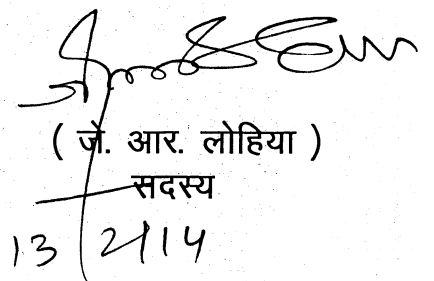 ( जे. आर. लोहिया )
सदस्य
13/2/14